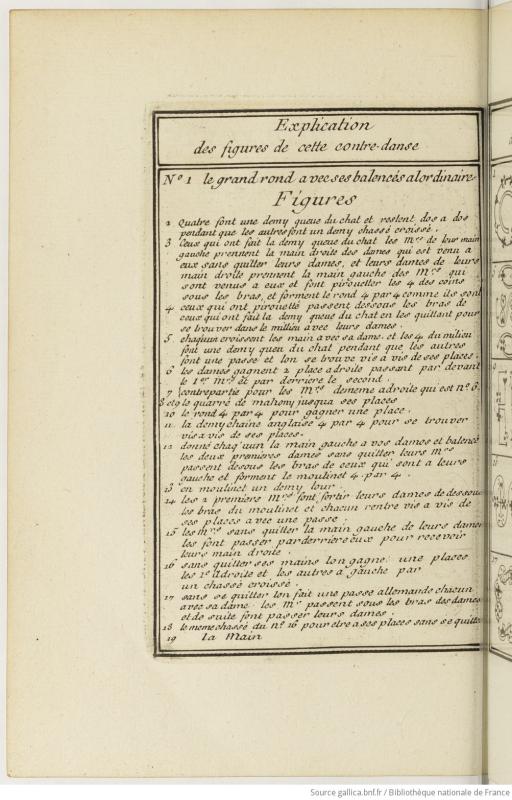 Explication
des figures de cette contre-danse
N° 1 le grand rond avec ses balencés alordinaire
Figures
2 Quatre font une demy queue du chat et restent dos a dos
pendant que les autres font un demy chassé croissé.
3 Ceux qui ont fait la demy queue du chat les Mrs de leur main
gauche prennent la main droite des dames qui est venu a
eux sans quitter leurs dames, et leurs dames de leurs
main droite prennent la main gauche des Mrs qui
sont venus a eux et font pirouetter les 4 des coins
sous les bras, et forment le rond 4 par 4 comme ils sont
4 ceux qui ont pirouetté passent dessous les bras de
ceux qui ont fait la demy queue du chat en les quittant pour
se trouver dans le millieu avec leurs dames.
5 chaq'uun croissent les main avec sa dame. et les 4 du milieu
font une demy queu du chat pendant que les autres
font une passe et lon se trouve vis a vis de ses places.
6 les dames gagnent 2 place a droite passant par devant
le 1er Mrs et par derriere le second.
7 contrepartie pour les Mrs dememe adroite qui est n° 6.
8 et 9 le quarré de mahony jusqua ses places
10 le rond 4 par 4 pour gagner une place.
11 la demy chaine anglaise 4 par 4 pour se trouver
vis a vis de ses places.
12 donné chaq'uun la main gauche a vos dames et balencé
les deux premieres dames sans quitter leurs Mrs
passent desous les bras de ceux qui sont a leurs
gauche et forment le moulinet 4 par 4.
13 en moulinet un demy tour.
14 les 2 premiere Mrs font sortir leurs dames de dessous
les bras du moulinet et chacun rentre vis a vis de
ses places avec une passe.
15 les Mrs sans quitter la main gauche de leurs dames
les font passer par derriere eux pour recevoir
leurs main droite.
16 sans quitter ses mains lon gagne une places
les 1ers adroite et les autres a gauche par
un chassé croissé.
17 sans se quitter lon fait une passe allemande chacun
avec sa dame. les Mrs passent sous les bras des dames
et de suite font passer leurs dames.
18 le meme chassé du n° 16 pour etre a ses places sans se quitter
19 La Main
Source gallica.bnf.fr / Bibliothèque nationale de France